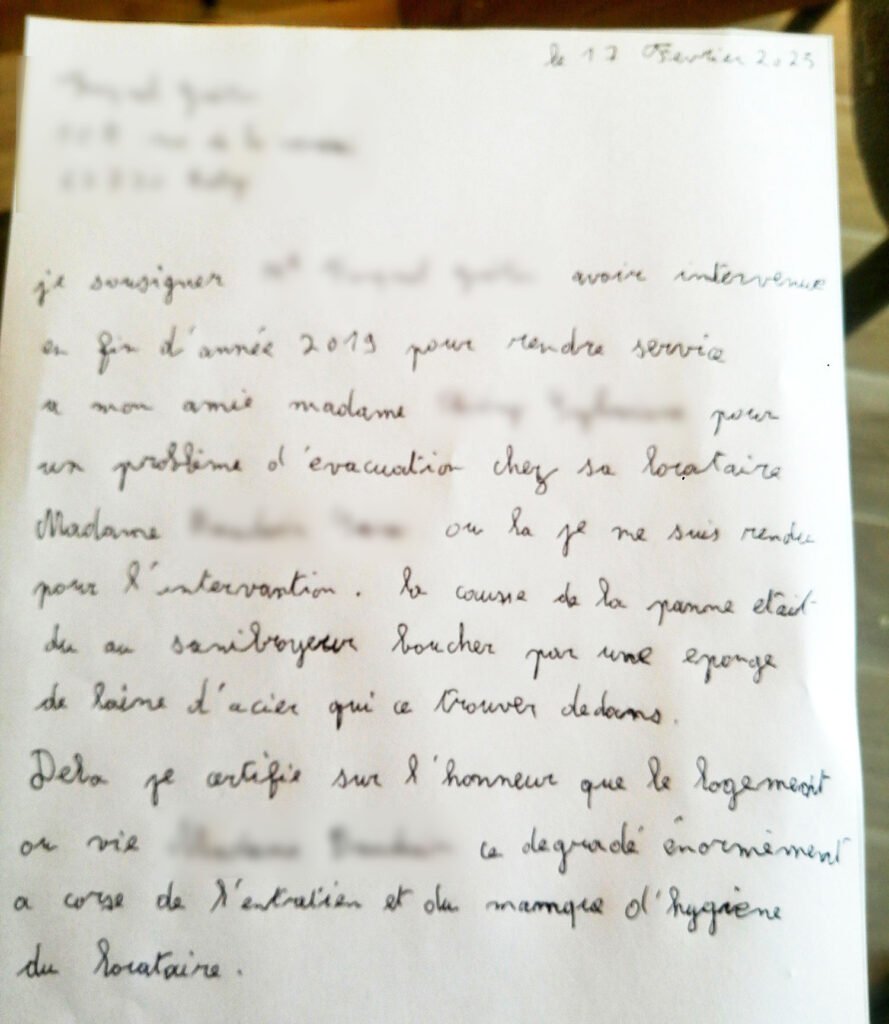 le 17 Fevrier 2025
je sousigner avoir intervenue
en fin d'année 2019 pour rendre service
a mon amie madame pour
un problème d'évacuation chez sa locataire
Madame ou la je me suis rendu
pour l'intervantion. la cause de la panne etait
du au sanibroyeur boucher par une eponge
de laine d'acier qui ce trouver dedans.
Dela je certifie sur l'honneur que le logement
ou vie ce degradé énormèment
a corse de l'entretien et du manque d'hygiene
du locataire.